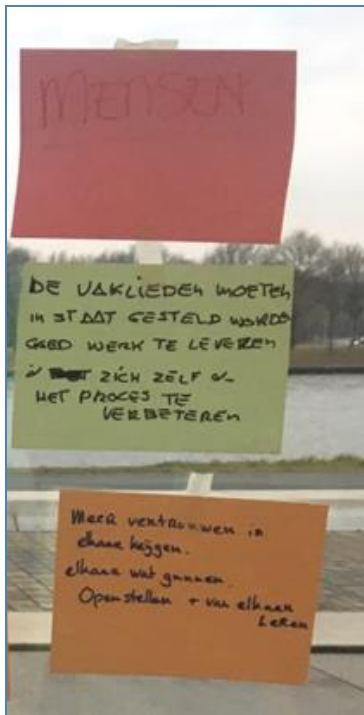 MENSEN
DE VAKLIEDEN MOETEN
IN STAAT GESTELD WORDEN
GOED WERK TE LEVEREN
ZICH ZELF
HET PROCES TE
VERBETEREN
Meer vertrouwen in
elkaar krijgen.
elkaar wat gunnen.
Openstellen + van elkaar
Leren